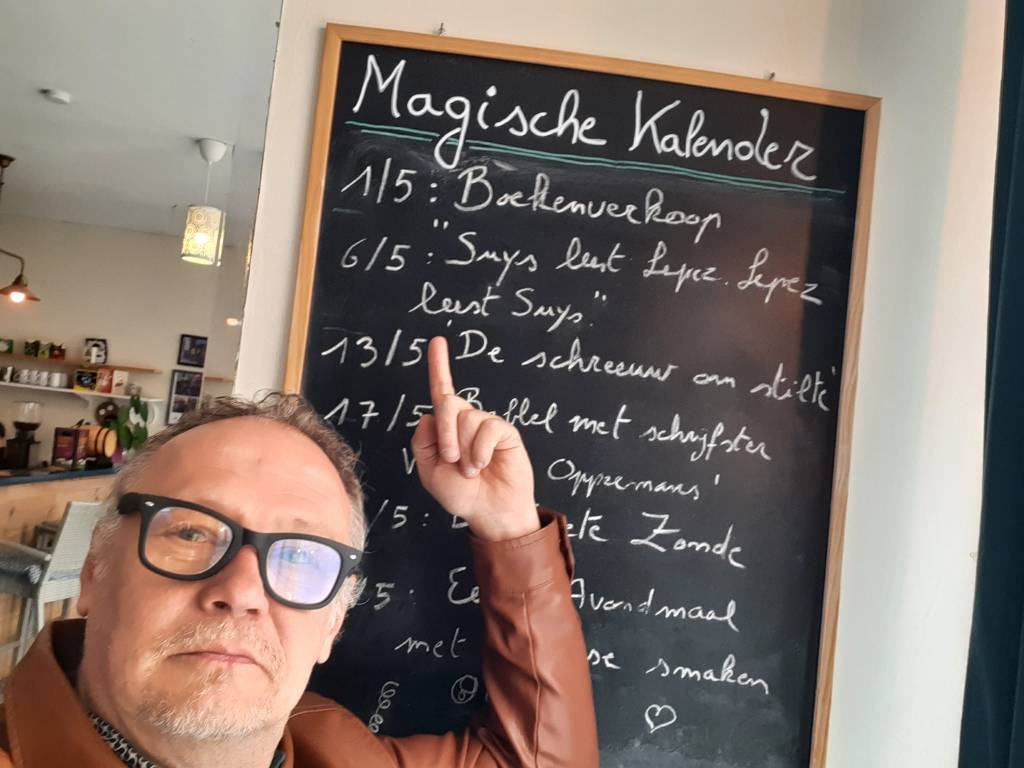 Magische Kalender
1/5 : Boekenverkoop
6/5 : "Suys leest Lopez. Lopez
leest Suys."
13/5 'De schreeuw om stilte'
17/5 met schrijfster
Oppermans'
/5 : Zonde
5 : Avondmaal
met smaken